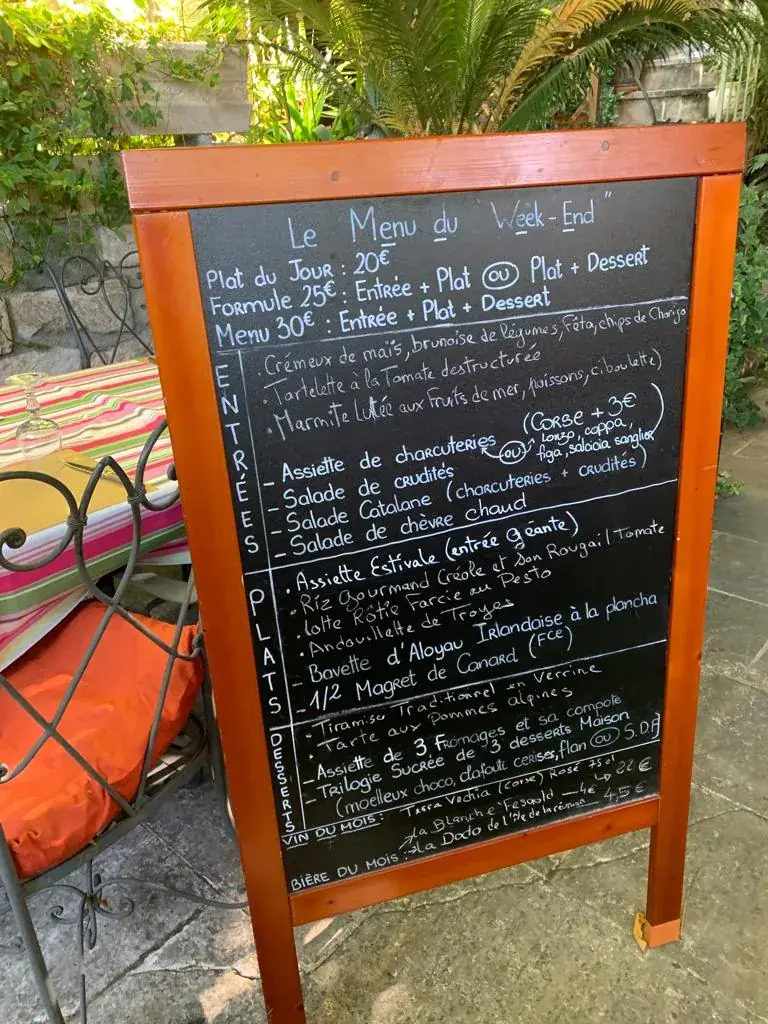 Le Menu du "Week-End"
Plat du Jour : 20€
Formule 25€ : Entrée + Plat (OU) Plat + Dessert
Menu 30€ : Entrée + Plat + Dessert
ENTRÉES
. Crémeux de maïs, brunoise de légumes, Fêta, chips de Chorizo
. Tartelette à la Tomate destructurée
. Marmite lutée aux Fruits de mer, poissons, ciboulette)
- Assiette de charcuteries (OU) (CORSE + 3€
lonzo, coppa,
figa, salcicia sanglier)
- Salade de crudités
- Salade Catalane (charcuteries + crudités)
- Salade de chèvre chaud
PLATS
. Assiette Estivale (entrée géante)
. Riz Gourmand Créole et son Rougail Tomate
. Lotte Rôtie Farcie au Pesto
. Andouillette de Troyes
- Bavette d'Aloyau Irlandaise à la plancha
- 1/2 Magret de Canard (Fce)
DESSERTS
. Tiramisu Traditionnel en Verrine
. Tarte aux Pommes alpines
- Assiette de 3 fromages et sa compote
- Trilogie Sucrée de 3 desserts Maison
(moelleux choco, clafouti cerises, flan (OU) S.D.F)
VIN DU MOIS : Terra Vechia (Corse) Rosé 75cl
↳ 22€
BIÈRE DU MOIS : La Blanche — 4€
La Dodo de l'île de la réunion 4,5€